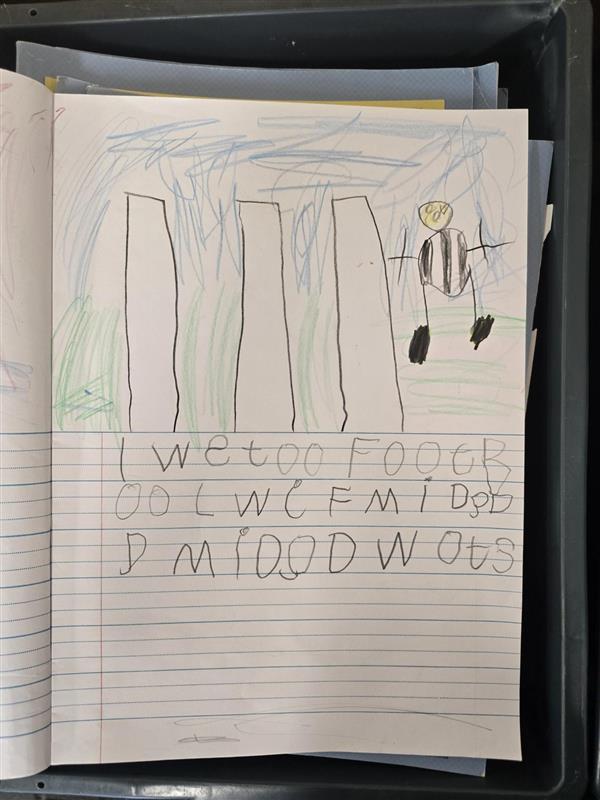 I wetoo FootB
oo L Wi F M i DoD
D M i DOD W Ots